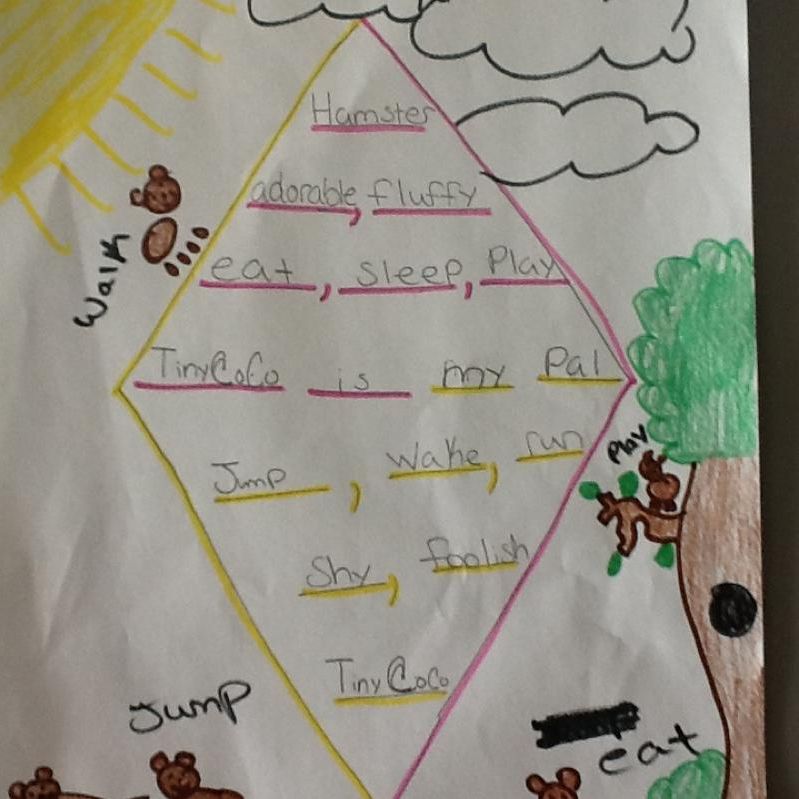 Hamster
adorable, fluffy
eat, sleep, Play
Walk
TinyCoCo is my Pal
Jump, wake, run
Play
Shy, foolish
TinyCoCo
Jump
eat